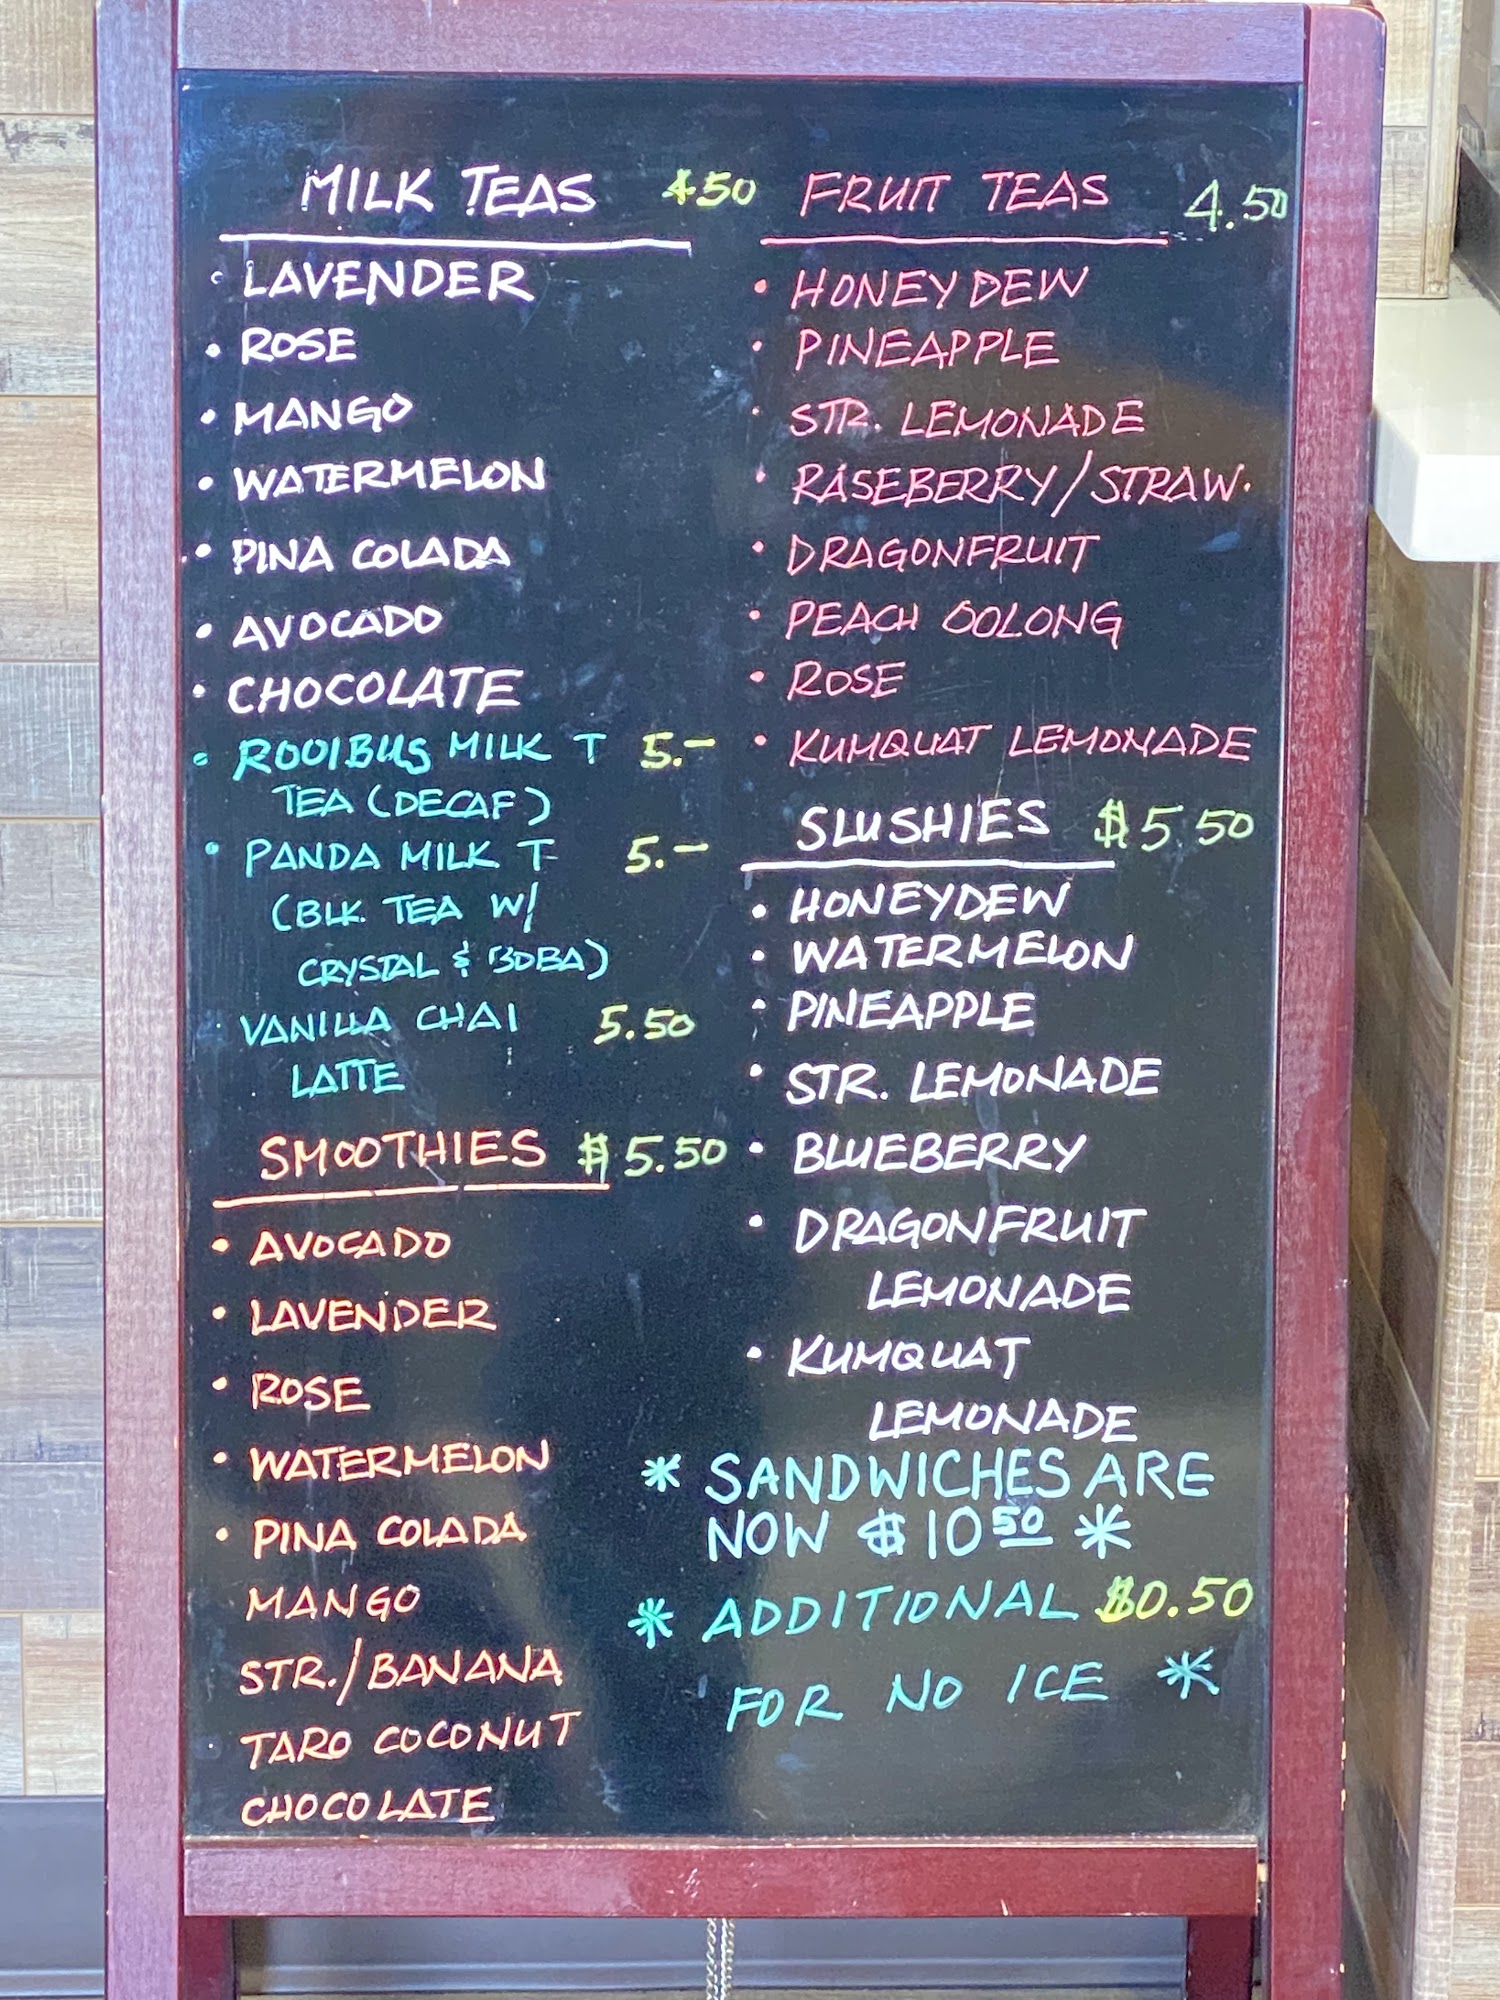 MILK TEAS 4.50
LAVENDER
ROSE
MANGO
WATERMELON
PINA COLADA
AVOCADO
CHOCOLATE
ROOIBUS MILK T 5.-
TEA (DECAF)
PANDA MILK T 5.-
(BLK. TEA W/
CRYSTAL & BOBA)
VANILLA CHAI 5.50
LATTE
SMOOTHIES $5.50
AVOCADO
LAVENDER
ROSE
WATERMELON
PINA COLADA
MANGO
STR./BANANA
TARO COCONUT
CHOCOLATE
FRUIT TEAS 4.50
HONEYDEW
PINEAPPLE
STR. LEMONADE
RASEBERRY/STRAW.
DRAGONFRUIT
PEACH OOLONG
ROSE
KUMQUAT LEMONADE
SLUSHIES $5.50
HONEYDEW
WATERMELON
PINEAPPLE
STR. LEMONADE
BLUEBERRY
DRAGONFRUIT
LEMONADE
KUMQUAT
LEMONADE
* SANDWICHES ARE
NOW $10 50 *
* ADDITIONAL $0.50
FOR NO ICE *